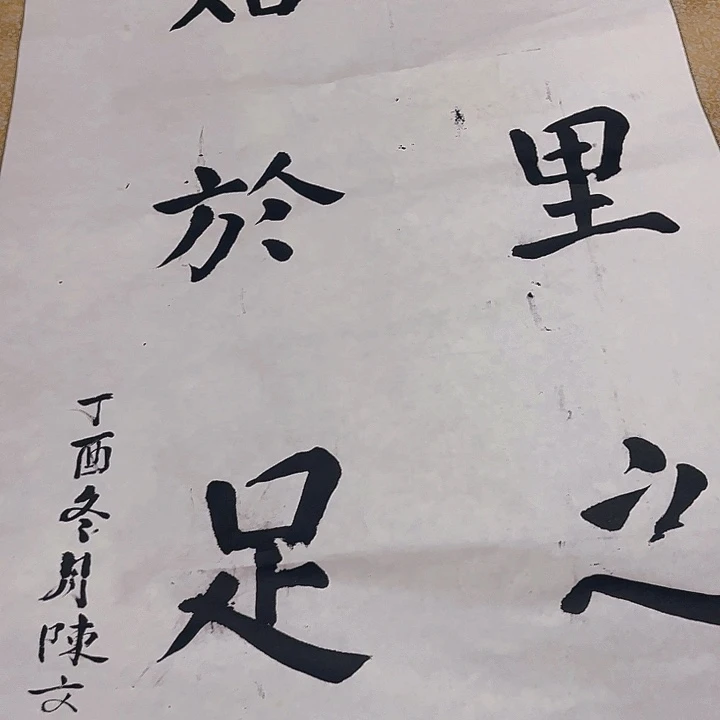 里之
始於足
丁酉冬月陳文